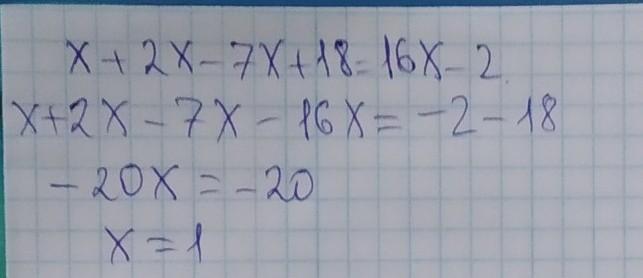 x + 2x - 7x + 18 = 16x - 2
x + 2x - 7x - 16x = -2 - 18
-20x = -20
x = 1